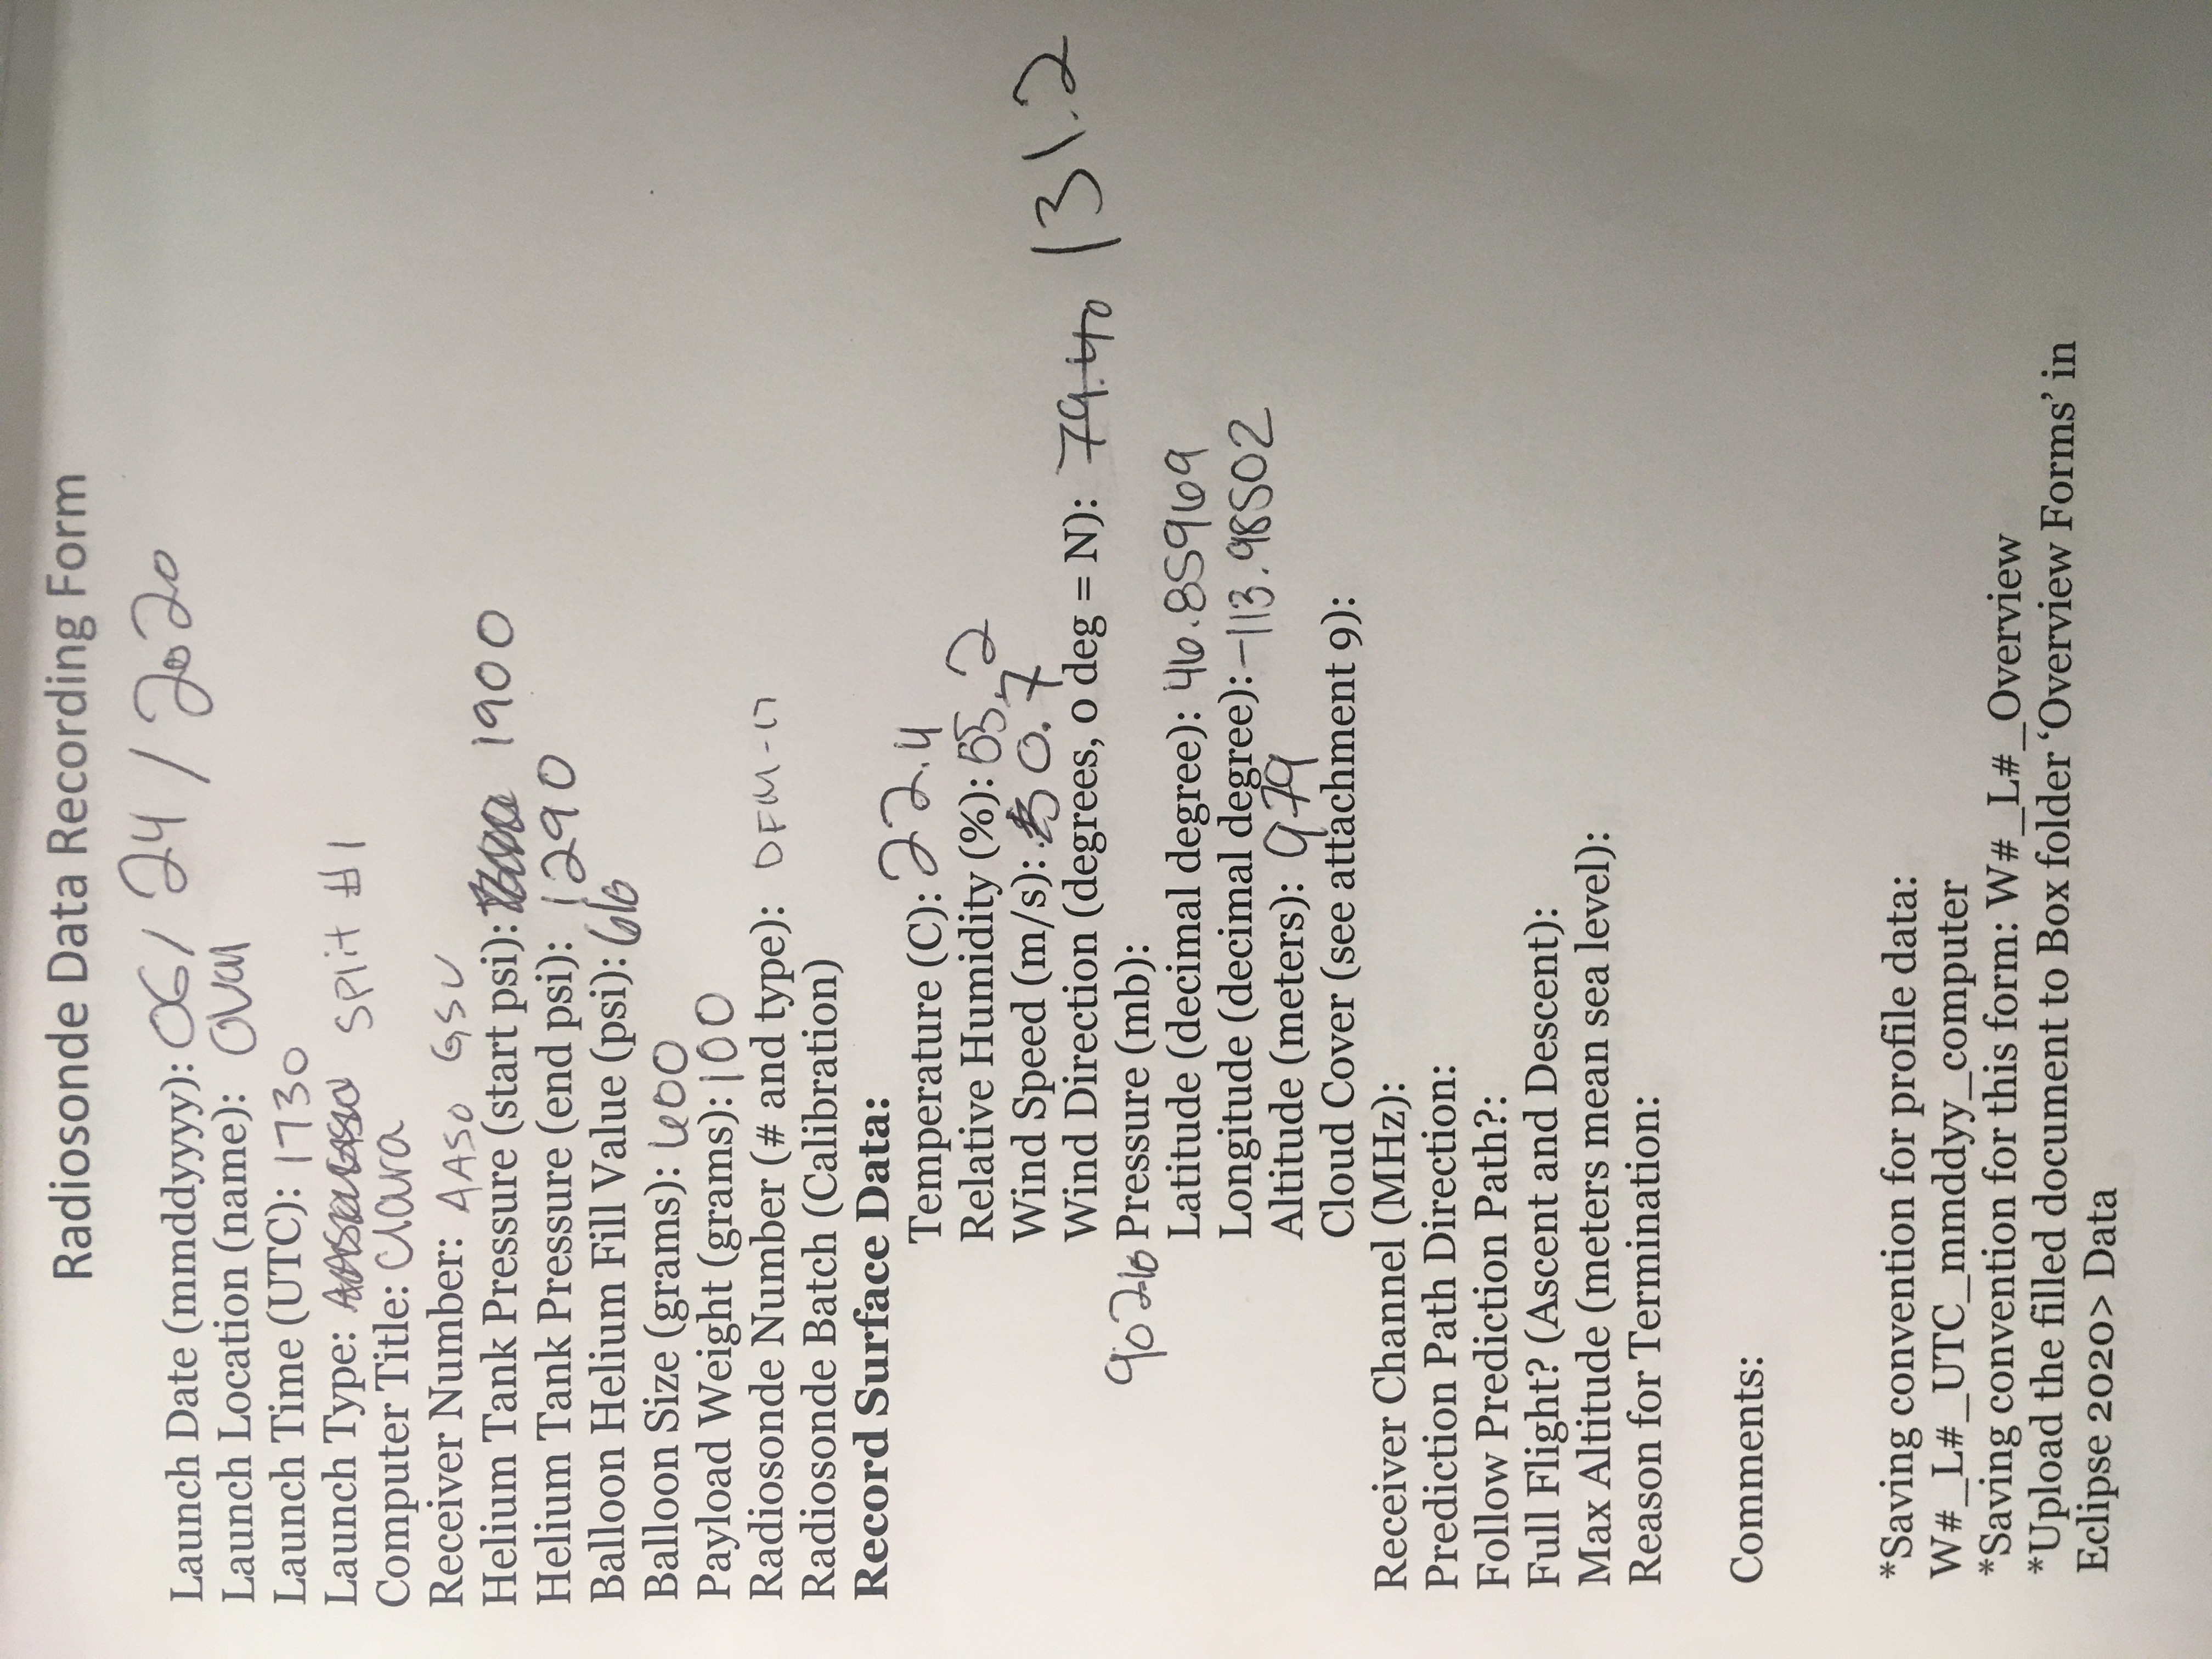 Radiosonde Data Recording Form
Launch Date (mmddyyyy): 06/24/2020
Launch Location (name): Oval
Launch Time (UTC): 1730
Launch Type: Split #1
Computer Title: Clara
Receiver Number: AASO GSU
Helium Tank Pressure (start psi): 1900
Helium Tank Pressure (end psi): 1290
Balloon Helium Fill Value (psi):
Balloon Size (grams): 600
Payload Weight (grams): 100
Radiosonde Number (# and type): DFM-17
Radiosonde Batch (Calibration)
Record Surface Data:
Temperature (C): 22.4
Relative Humidity (%): 55.2
Wind Speed (m/s): 0.7
Wind Direction (degrees, 0 deg = N): 79.40 131.2
902.6 Pressure (mb):
Latitude (decimal degree): 46.85969
Longitude (decimal degree): -113.98502
Altitude (meters): 979
Cloud Cover (see attachment 9):
Receiver Channel (MHz):
Prediction Path Direction:
Follow Prediction Path?:
Full Flight? (Ascent and Descent):
Max Altitude (meters mean sea level):
Reason for Termination:
Comments:
*Saving convention for profile data:
W#_L#_UTC_mmddyy_computer
*Saving convention for this form: W#_L#_Overview
*Upload the filled document to Box folder ‘Overview Forms’ in
Eclipse 2020> Data